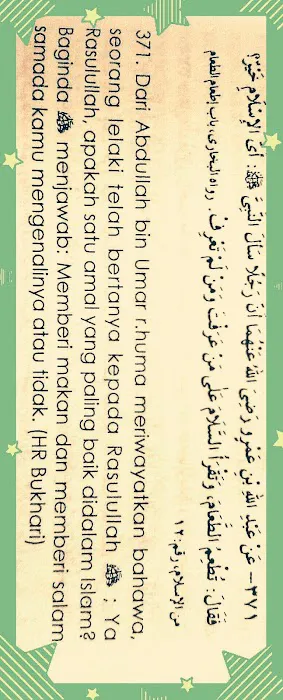 ٣٧١ – عَنْ عَبْدِ اللهِ بْنِ عَمْرٍو رَضِيَ اللهُ عَنْهُمَا أَنَّ رَجُلًا سَأَلَ النَّبِيَّ ﷺ: أَيُّ الْإِسْلَامِ خَيْرٌ؟
فَقَالَ: تُطْعِمُ الطَّعَامَ، وَتَقْرَأُ السَّلَامَ عَلَى مَنْ عَرَفْتَ وَمَنْ لَمْ تَعْرِفْ. رواه البخارى، باب إطعام الطعام
من الإسلام، رقم: ١٢
371. Dari Abdullah bin Umar r.huma meriwayatkan bahawa,
seorang lelaki telah bertanya kepada Rasulullah ﷺ ; Ya
Rasulullah, apakah satu amal yang paling baik didalam Islam?
Baginda ﷺ menjawab: Memberi makan dan memberi salam
samada kamu mengenalinya atau tidak. (HR Bukhari)